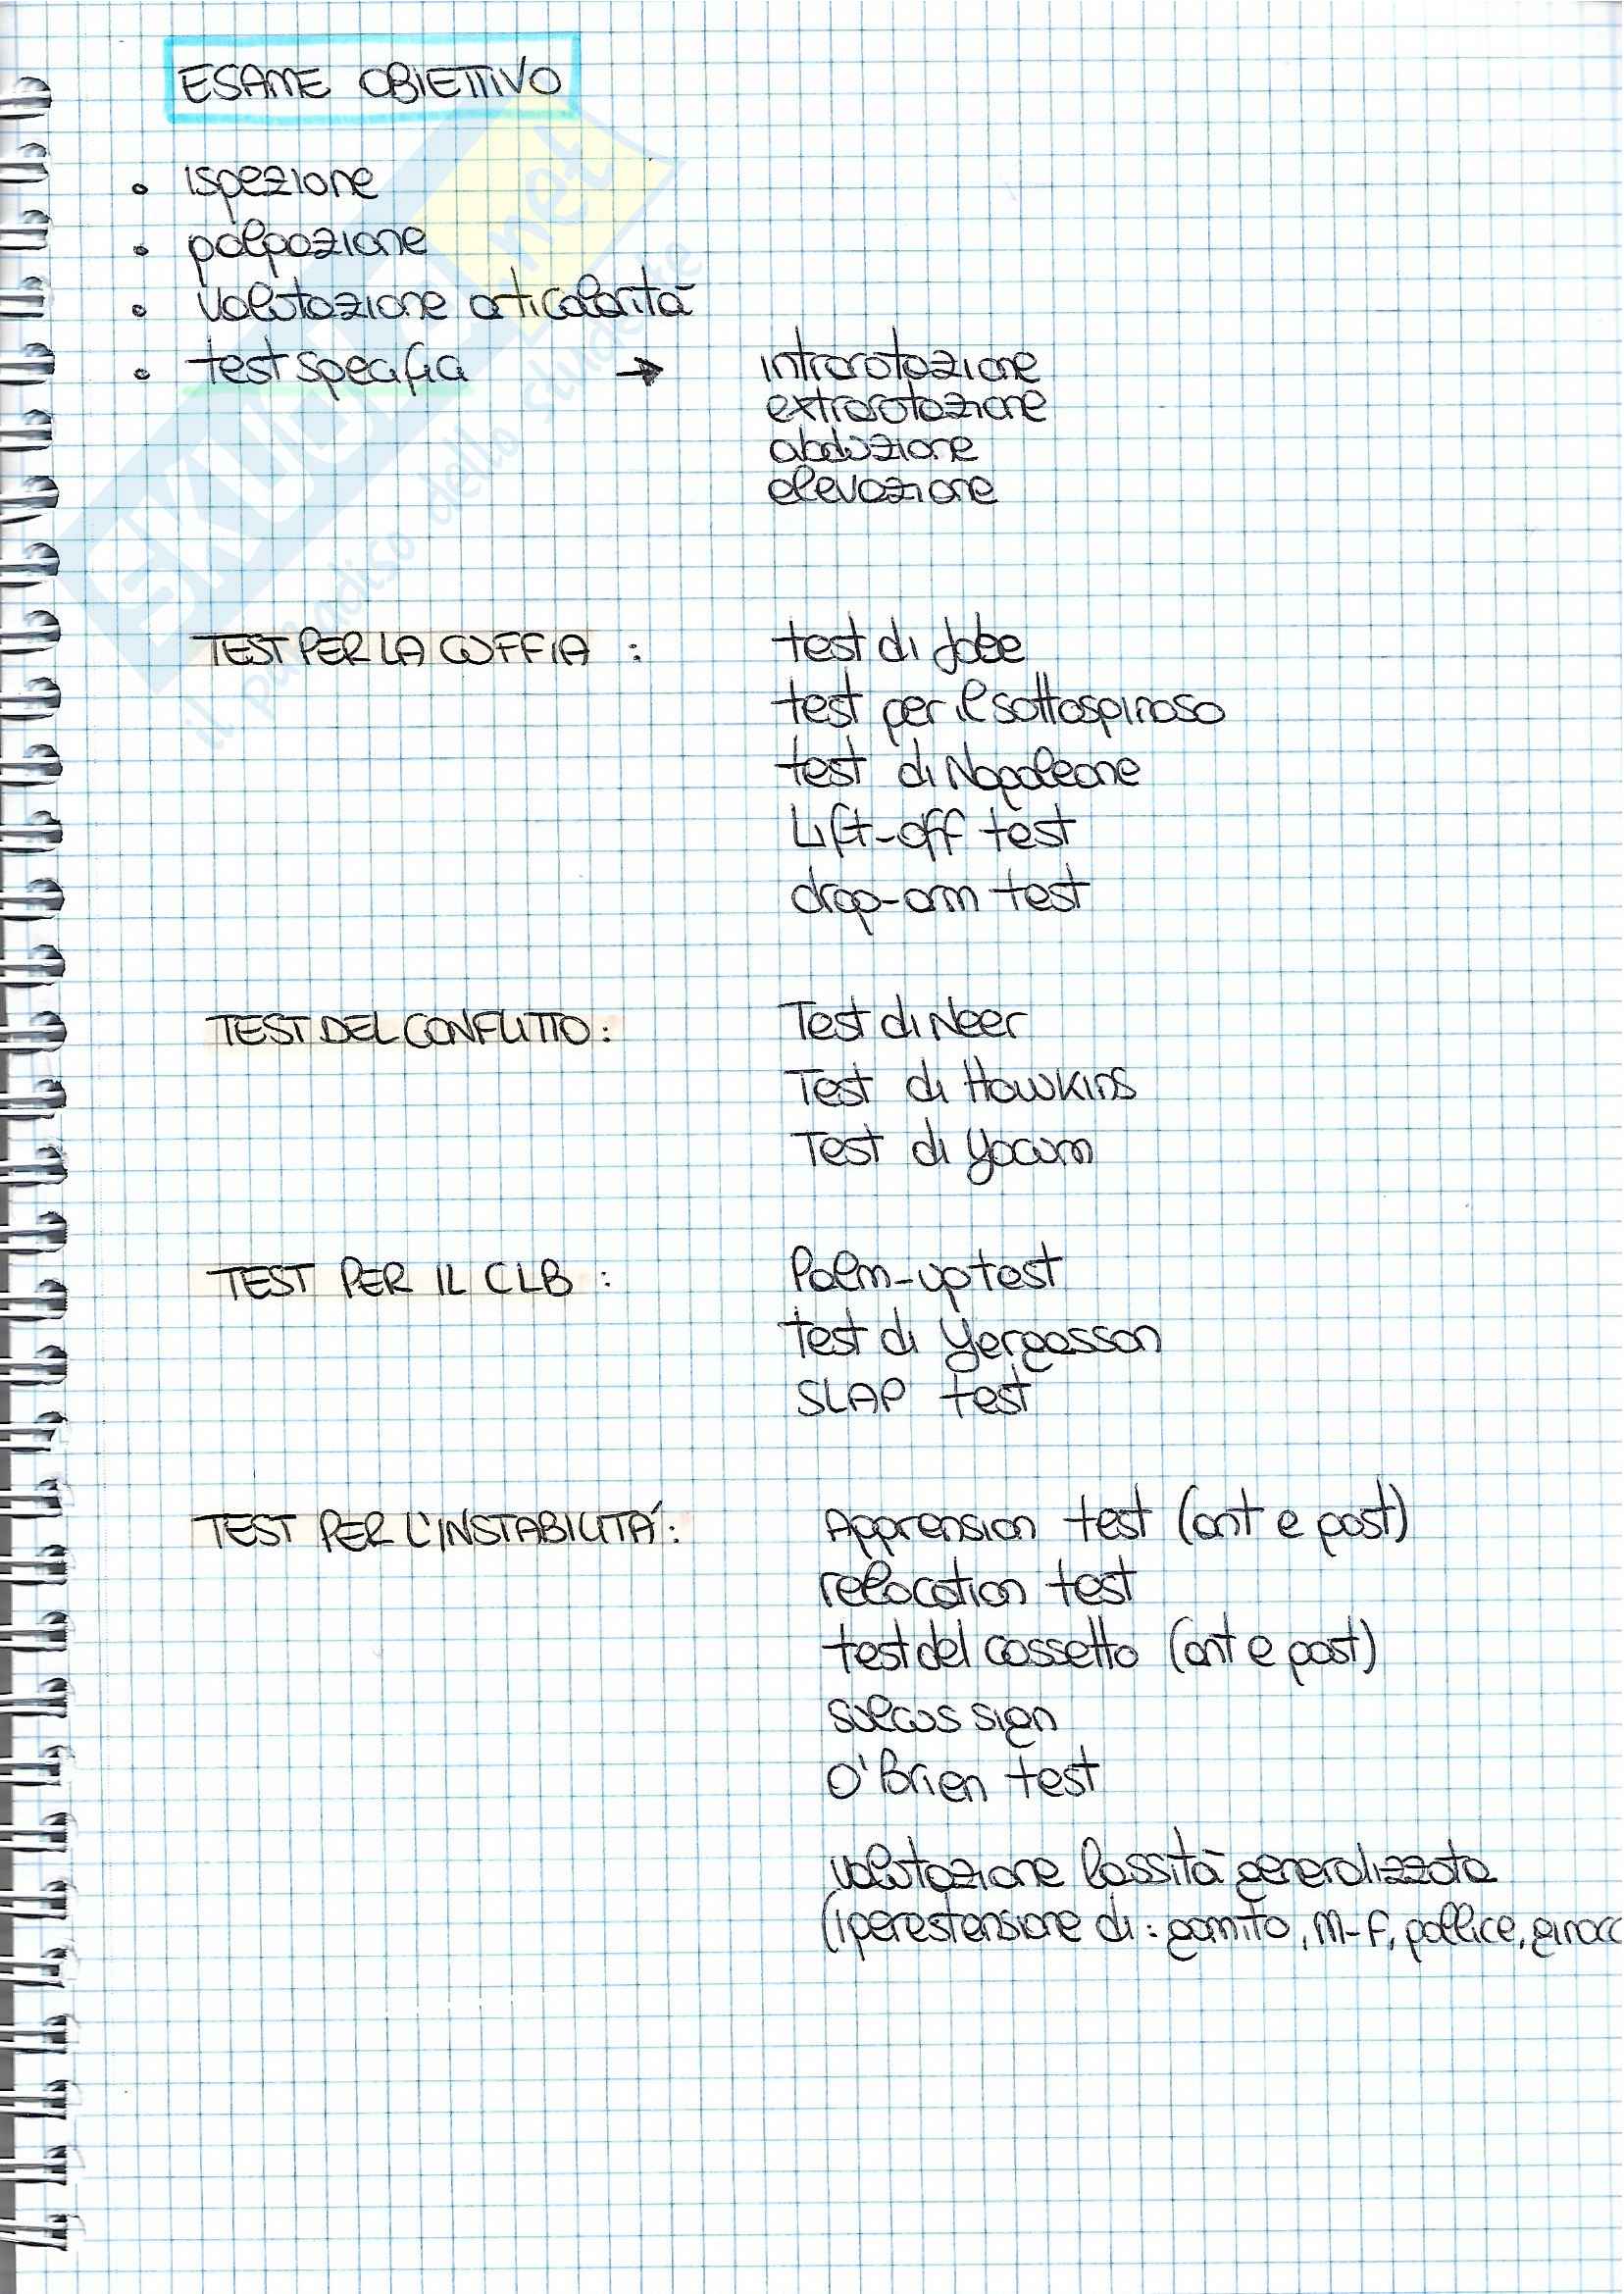 ESAME OBIETTIVO
• ispezione
• palpazione
• valutazione articolarità
• test specifici → introrotazione
extrarotazione
abduzione
elevazione
TEST PER LA CUFFIA : test di Jobe
test per il sottospinoso
test di Napoleone
Lift-off test
drop-arm test
TEST DEL CONFLITTO : Test di Neer
Test di Hawkins
Test di Yocum
TEST PER IL CLB : Palm-up test
test di Yergasson
SLAP test
TEST PER L'INSTABILITÁ : Apprension test (ant e post)
relocation test
test del cassetto (ant e post)
Sulcus sign
O'Brien test
valutazione lassità generalizzata
(iperestensione di : gomito, M-F, pollice, ginocc
SKUOLA.net
il paradiso dello studente